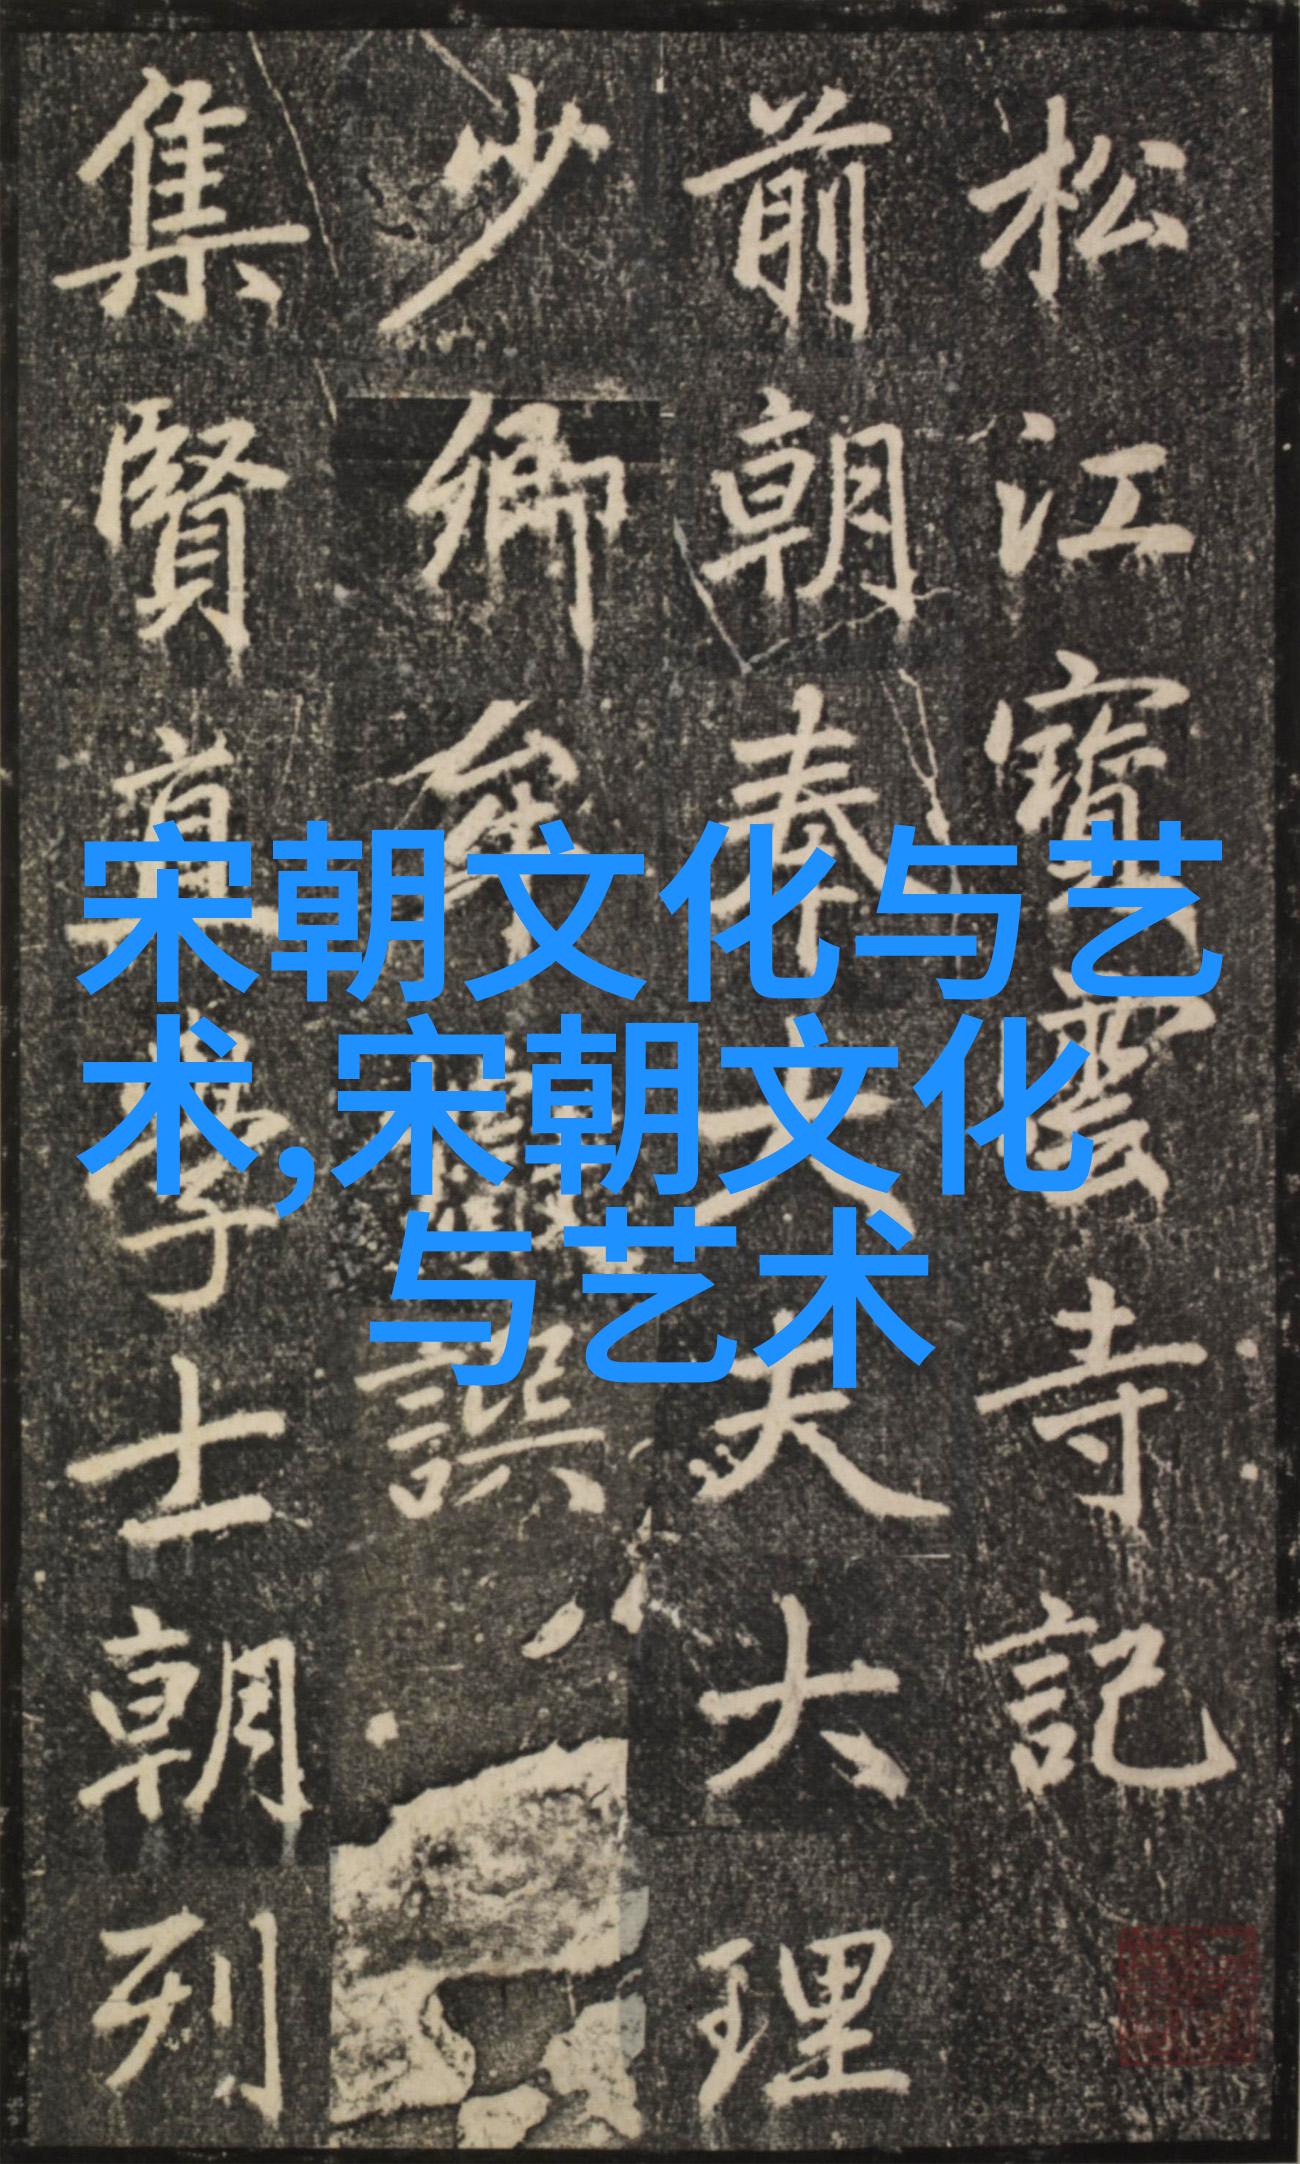 松江寶雲寺記
前朝奉大夫大理
少卿牟巘譔
集賢直學士朝列
宋朝文化与艺
术,宋朝文化
与艺术